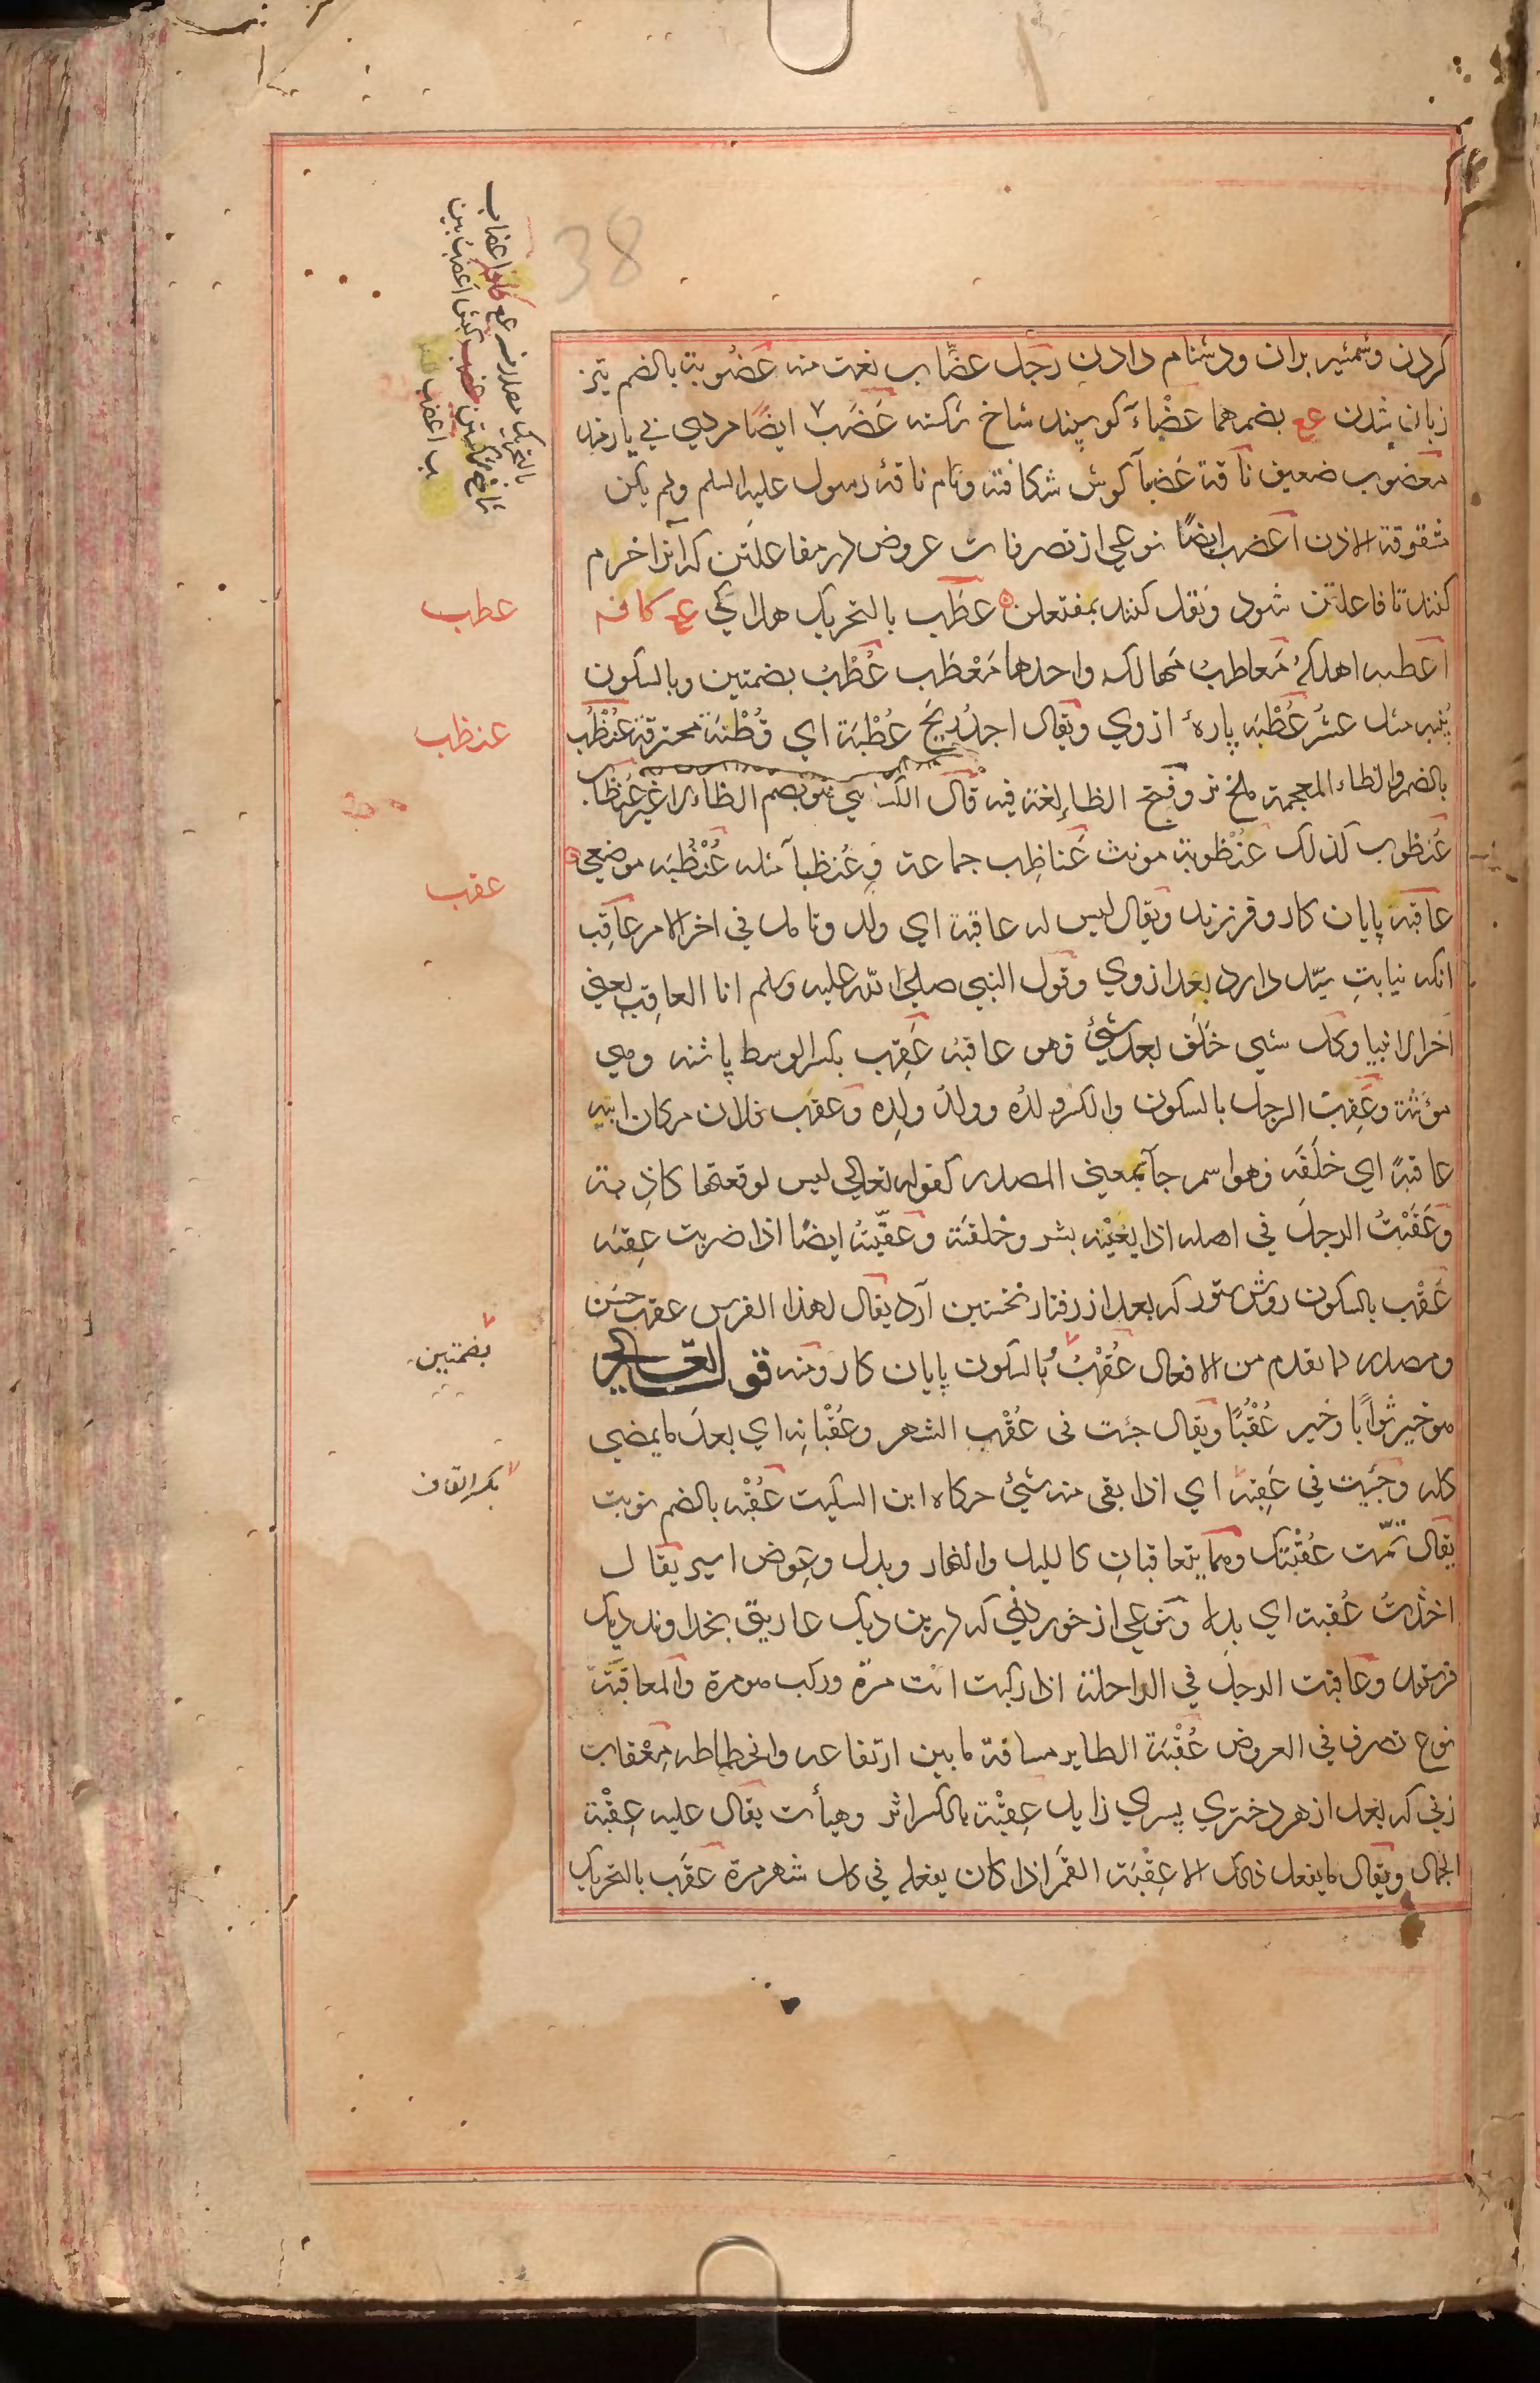 38
کردن وشمشیر بران ودشنام دادن رجل عضّاب نعت منه عضُوبة بالضم تیز
زبان شدن عج بضمهما عضْباء کوسپند شاخ شکسته عَضَب ایضًا مردی بی یارخه
معضوب ضعیف ناقة عَضباء کوش شکافته ونام ناقهٔ رسول علیه السلم ولم یکن
شقوقة الاذن اعضب ایضًا نوعی از تصرفات عروض در مفاعلتن که آنرا خرم
کنند تا فاعلتن شود ونقل کنند بمفتعلن عطَب بالتحریک هلاکی عج کافه
اعطبه اهلکهُ مَعاطبُ مَهالک واحدها مَعْطَب عُطْبُ بضمتین وبالسکون
پُنبه مثل عسُر عُطْبَه پارهٔ ازوی ویقال اجدُ ریحَ عُطْبَة ای قُطْنَة محترقة عُنْظُب
بالضم والظاء المعجمة ملخ نر وفتح الظاء لغة فیه قال الکسائی هو بضم الظاء لاغیر عُنظاب
عُنظوب کذلک عنْظوبة مونث عَناظِب جماعة وعُنظباء مثله عُنْظُبَه موضعی
عاقبة پایان کار وفرزند ویقال لیس له عاقبة ای ولد وتامل فی اخر الامر عاقِب
انکه نیابتِ سیّد دارد بعد ازوی وقول النبی صلی الله علیه وسلم انا العاقِب یعنی
اخر الانبیا وکل شی خلَفَ بعد شئ فهو عاقبُه عَقِب بکسر الوسط پاشنه وهی
مؤنثة وعَقِبت الرجل بالسکون والکسر ولدُه وولدُ ولدِه وعقَب فلان مکان ابیه
عاقبةً ای خلَفَه وهو اسم جآ بمعنی المصدر کقوله تعالی لیس لوقعتها کاذبة
وعَقَبْتُ الرجلَ فی اهله اذا بغَیْته بشر وخلفتَه وعقَّبتُه ایضًا اذا ضربت عقِبَه
عَقْب بالسکون روش ستور که بعد از رفتار نخستین آرد یقال لهذا الفرس عقب حسَن
ومصدر لما تقدم من الافعال عُقْبُ بالسکون پایان کار ومنه قوله تعالی
هو خیر ثوابًا وخیر عُقْبًا ویقال جئت فی عُقْب الشهر وعُقْبانِه ای بعد ما یمضی
کله وجئت فی عَقِبه ای اذا بقی منه شئ حکاه ابن السکیت عُقْبه بالضم نوبت
یقال تمّت عُقْبَتُک وهما یتعاقبانِ کاللیل والنهار وبدل وعوض اسیر یقال
اخذتُ عُقبة ای بدله ونوعی از خوردنی که در بن دیک عاریتی بخداوند دیک
فرستد وعاقبت الرجل فی الراحلة اذا رکبت انت مرّة ورکب هو مرة والمعاقبَة
نوع تصرف فی العروض عُقْبَة الطایر مسافة ما بین ارتفاعه وانحطاطه مِعْقاب
زنی که بعد از هر دختری پسری زاید عِقْبَة بالکسر اثر وهیأت یقال علیه عِقْبَة
الجمال ویقال ما یفعل ذلک الا عِقْبَة القمَر اذا کان یفعله فی کل شهر مرة عقَب بالتحریک
عطب
عنظب
عقب
بضمتین
بکسر القاف